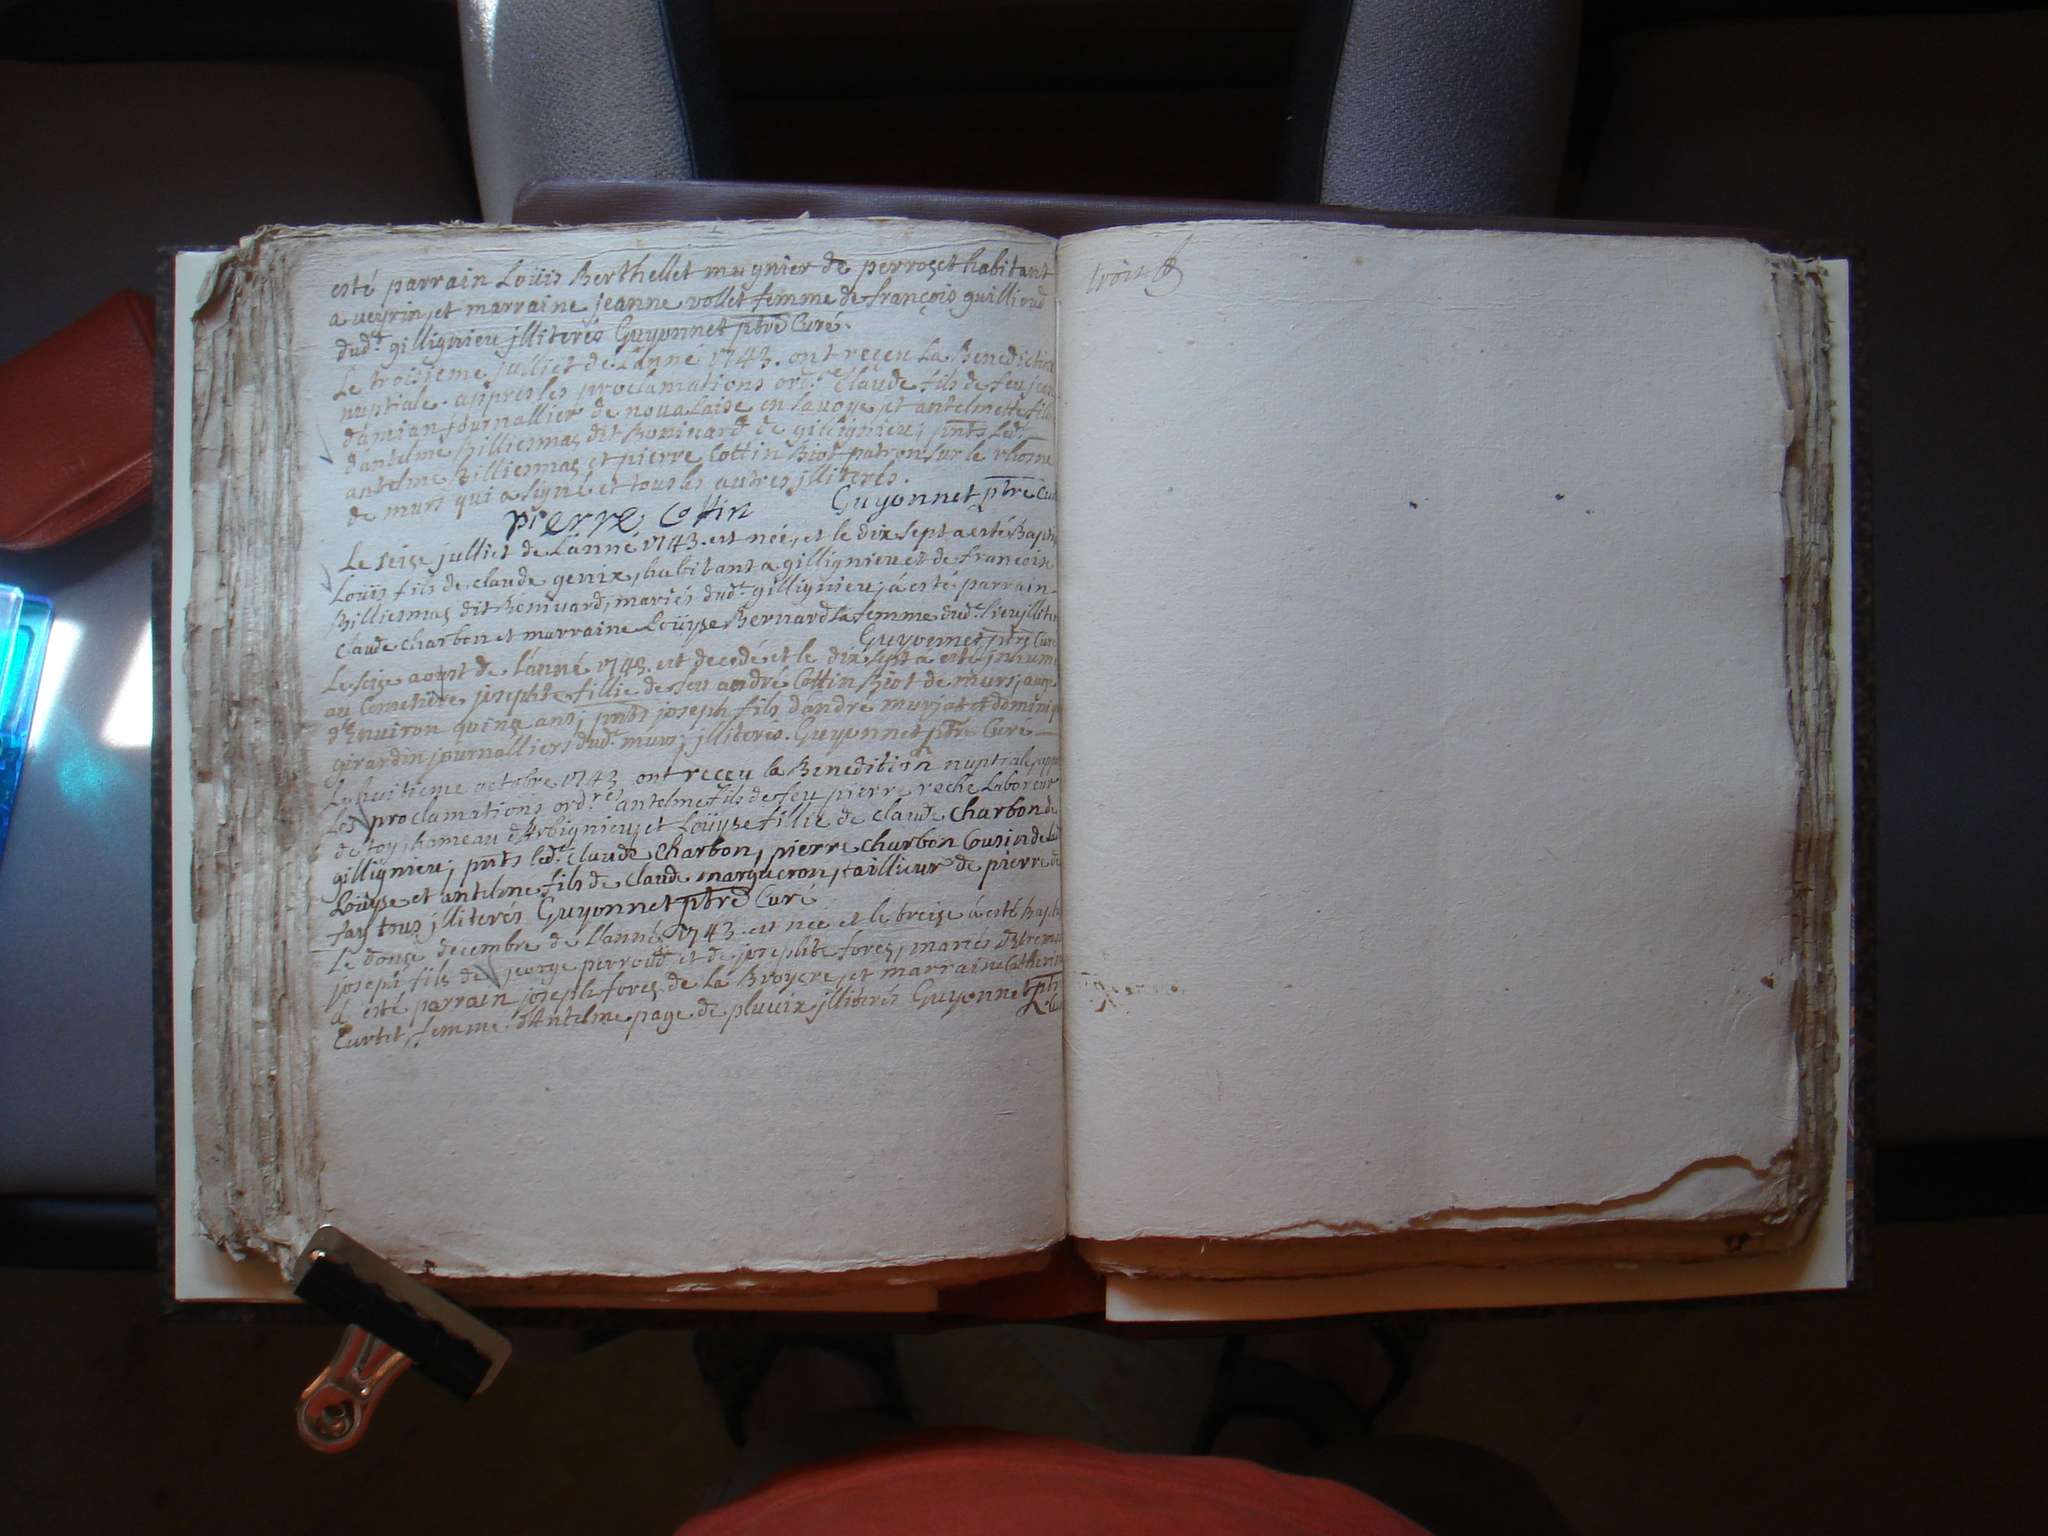 esté parrain Loüis Berthellet mugnier de perroset habitant
a veyrin, et marraine jeanne vollet femme de françois guillioud
dud.t gillignieu jlliterés Guyonnet ptre Curé.
Le troisieme julliet de L'anné 1743. ont reçeu La Benediction
nuptiale. appres les proclamations ord.res Claude fils de feu jean
damian journallier de novalaise en savoye, et antelmette fille
dantelme Billiemas dit Bonivard de gillignieu; pnts Led.t
antelme Billiemas et pierre Cottin Biot patron sur le rhosne
de murs qui a signé et tous les autres jlliterés.
pierre Cottin Guyonnet ptre Cur
Le seize julliet de L'anné 1743. est née, et le dix sept a esté Bapti
Loüis fils de claude genix, habitant a gillignieu et de francoise
Billiemas dit Bonivard, mariés dud.t gillignieu; á esté parrain
claude charbon et marraine Loüyse Bernard sa femme dud.t lieu jlliter
Guyonnet ptre Curé
Le seize aoust de l'anné 1743. est decedé et le dix sept a esté jnhumé
au Cemetiere josephte fillie de feu andré Cottin Biot de murs; aagé
d'Environ quinze ans; pnts joseph fils dandré murjat et dominiq
girardin journalliers dud.t murs; jlliteres. Guyonnet ptre Curé
Le huitieme octobre 1743 ont reçeu la Benedition nuptiale, appr
Les proclamations ord.res antelme fils de feu pierre roche Laboreur
de toy, hameau d'Arbignieu, et Loüyse fillie de claude Charbon de
gillignieu; pnts led.t claude Charbon, pierre charbon Cousin de lad
Loüyse et antelme fils de claude margueron, taillieur de pierre de
fay tous jlliterés Guyonnet ptre Curé
Le douze decembre de L'anné 1743. est née et le treize á esté Bapti
joseph fils de george perroud et de josephte forez, mariés
á esté parrain joseph forez de la Bruyere, et marraine Catherine
Curtet, femme d'Antelme page de pluvix jlliterés Guyonnet ptre
Cu